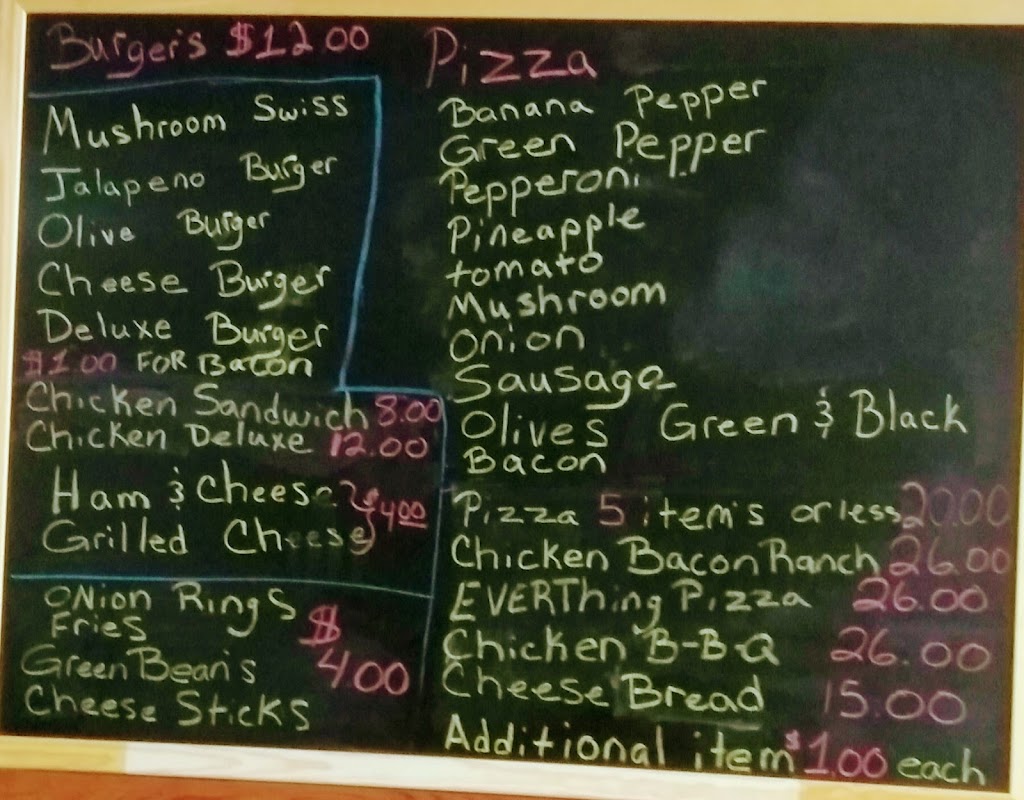 Burger's $12.00
Mushroom Swiss
Jalapeno Burger
Olive Burger
Cheese Burger
Deluxe Burger
$1.00 FOR Bacon
Chicken Sandwich 8.00
Chicken Deluxe 12.00
Ham & Cheese
4.00
Grilled Cheese
ONion Rings
Fries
$4.00
Green Bean's
Cheese Sticks
Pizza
Banana Pepper
Green Pepper
Pepperoni
Pineapple
tomato
Mushroom
onion
Sausage
Olives Green & Black
Bacon
Pizza 5 item's or less 20.00
Chicken Bacon Ranch 26.00
EVERThing Pizza 26.00
Chicken B-B-Q 26.00
Cheese Bread 15.00
Additional item $1.00 each